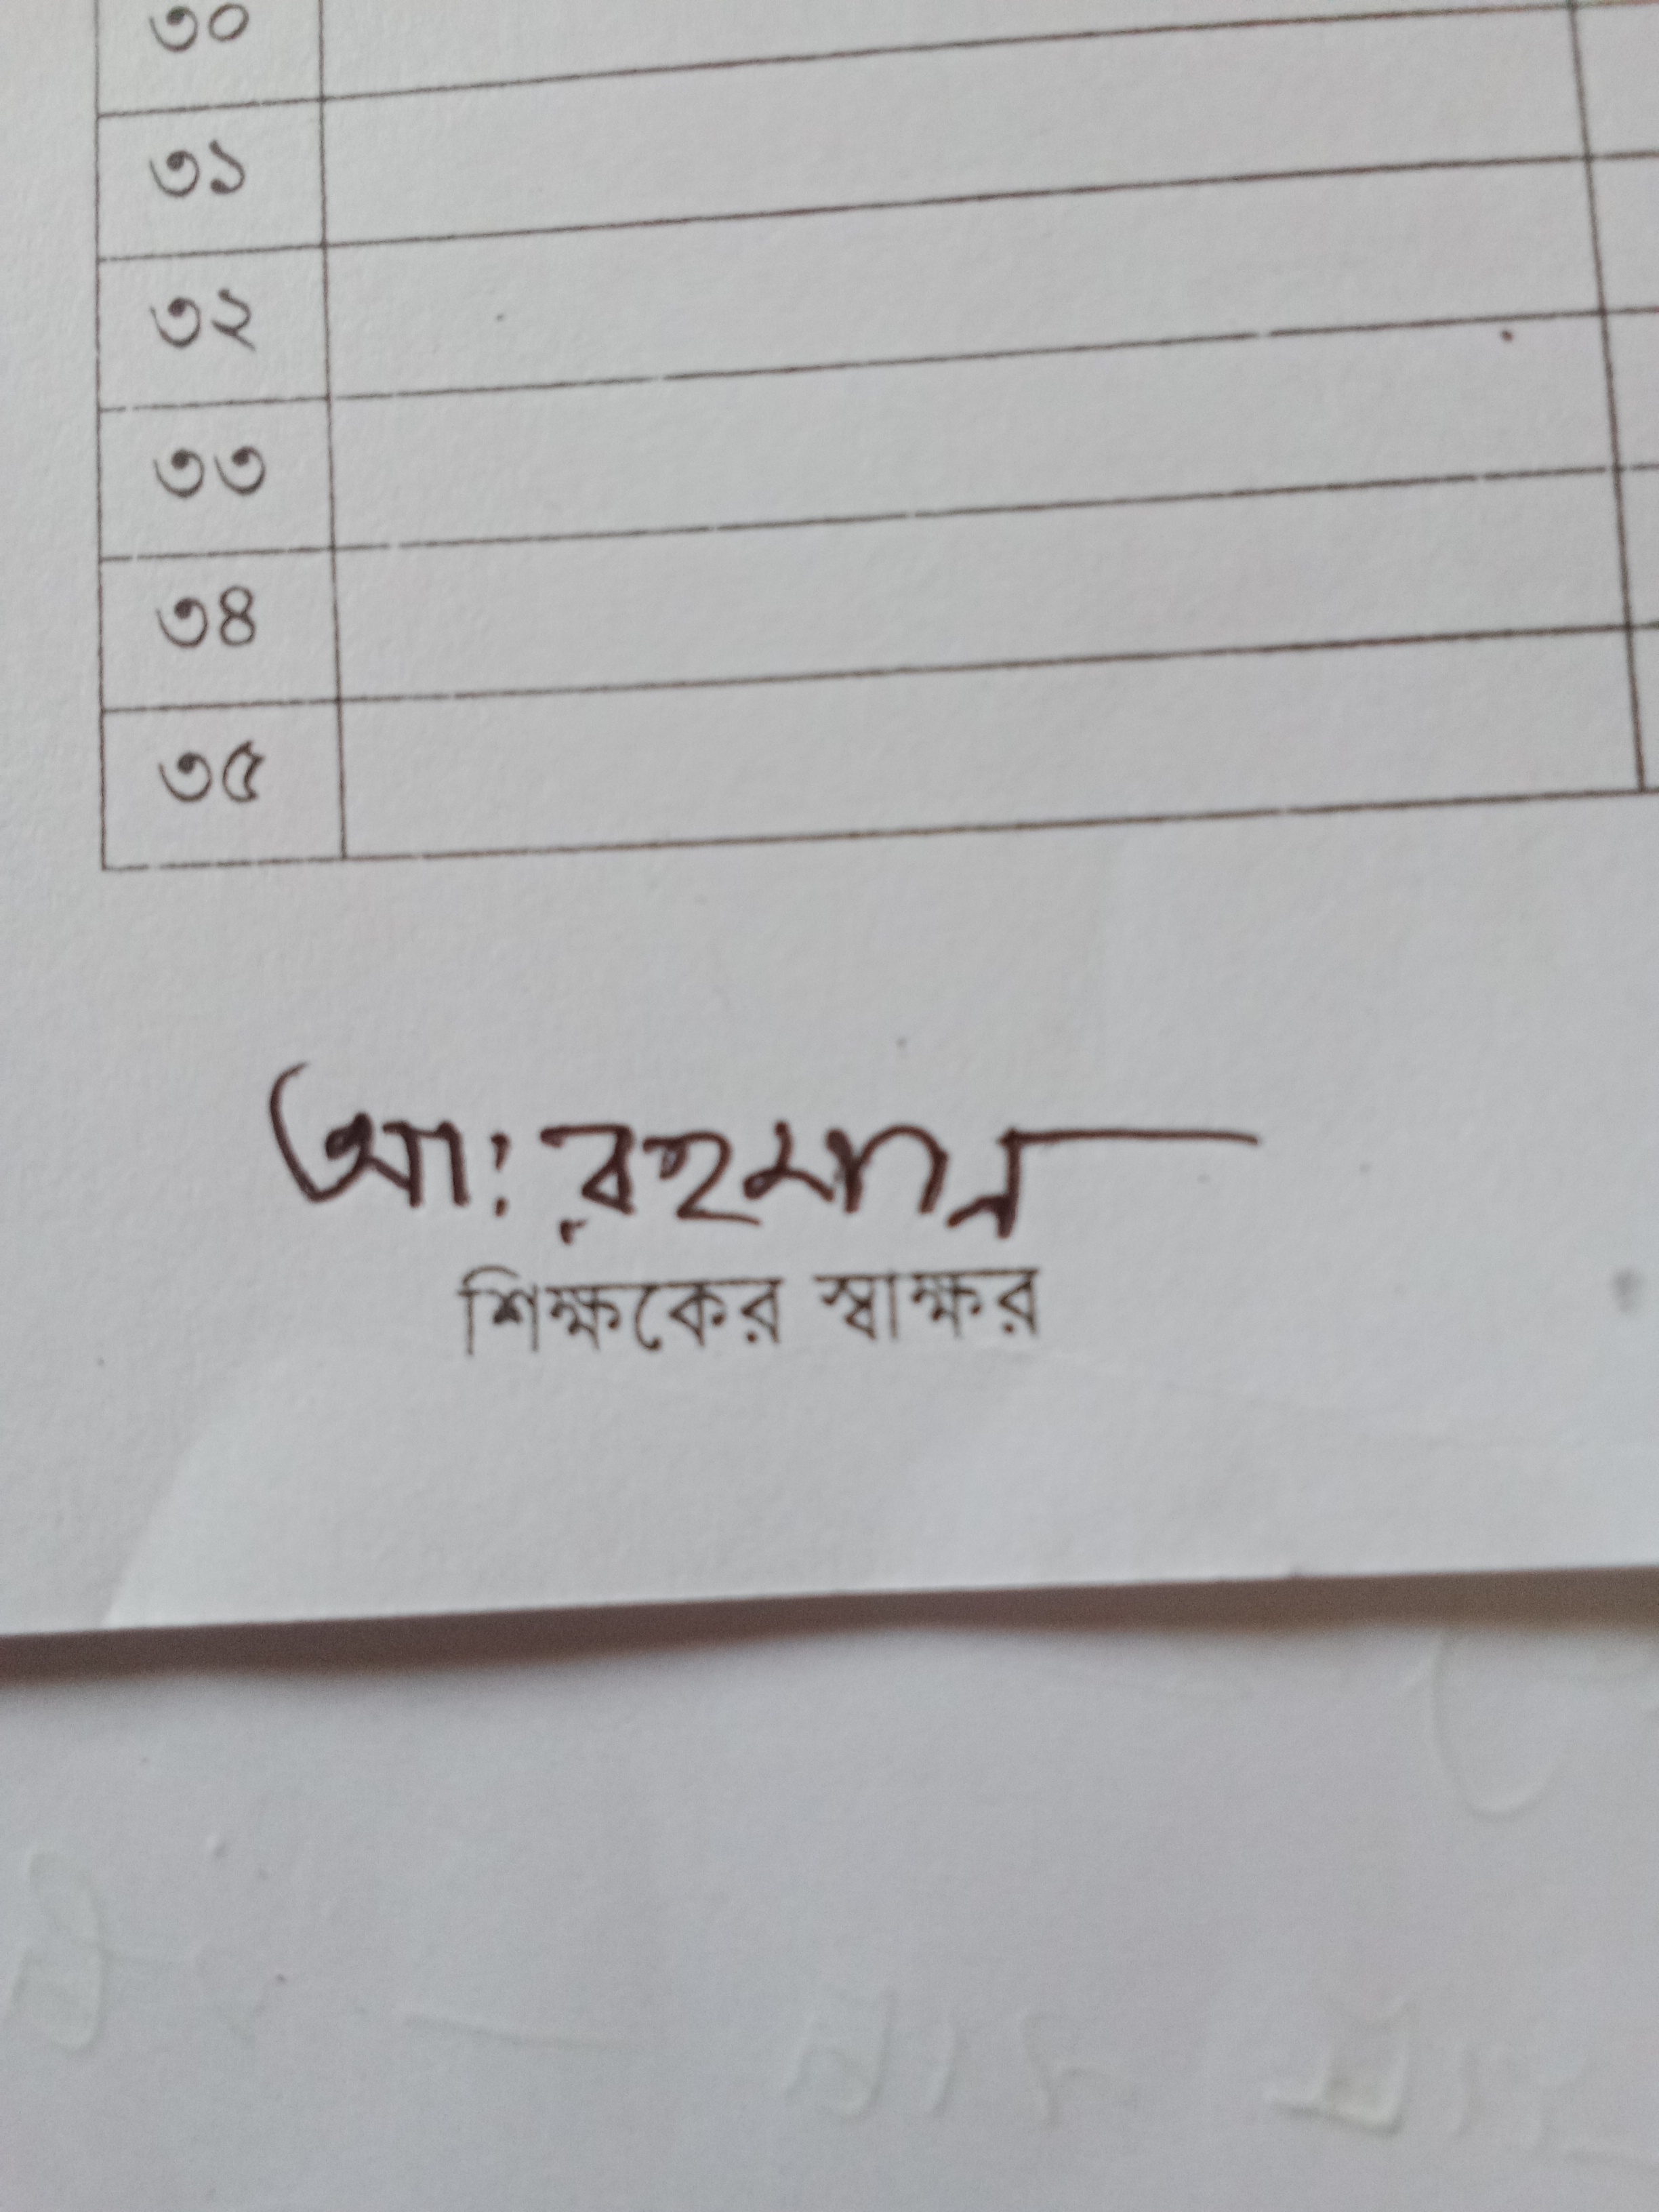 ৩০
৩১
৩২
৩৩
৩৪
৩৫
আঃ রহমান
শিক্ষকের স্বাক্ষর